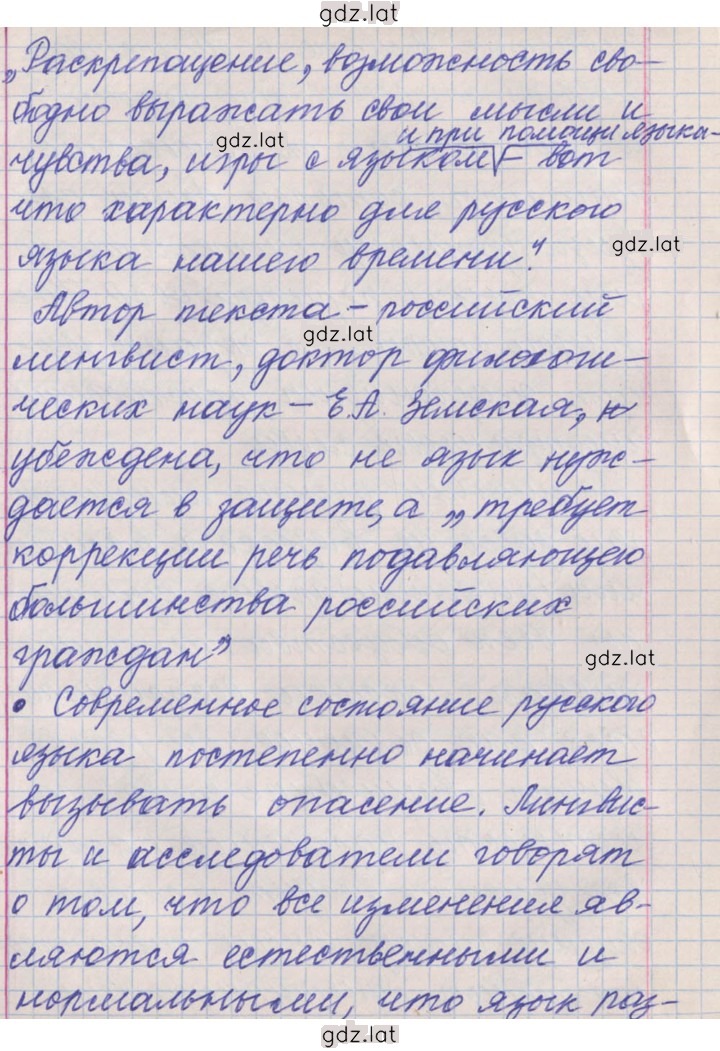 gdz.lat
„Раскрепощение, возможность сво-
бодно выражать свои мысли и
и при помощи языка-
чувства, игры с языком – вот
gdz.lat
что характерно для русского
языка нашего времени".
gdz.lat
Автор текста – российский
gdz.lat
лингвист, доктор филологи-
ческих наук – Е.А. Земская,
убеждена, что не язык нуж-
дается в защите, а „требует
коррекции речь подавляющего
большинства российских
граждан"
gdz.lat
• Современное состояние русского
языка постепенно начинает
вызывать опасение. Лингвис-
ты и исследователи говорят
о том, что все изменения яв-
ляются естественными и
нормальными, что язык раз-
gdz.lat